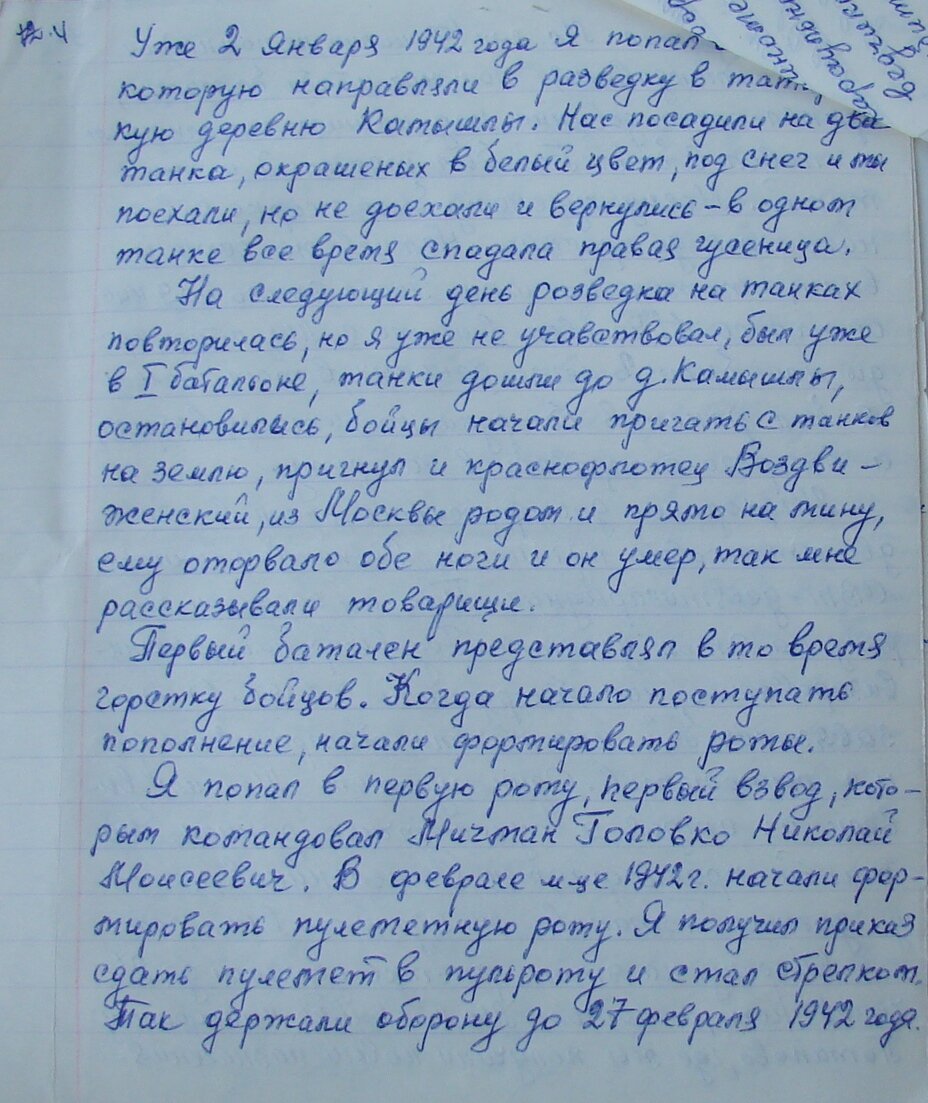 Уже 2 Января 1942 года Я попал
которую направляли в разведку в тата
кую деревню Камышлы. Нас посадили на два
танка, окрашеных в белый цвет, под снег и мы
поехали, но не доехали и вернулись – в одном
танке все время спадала правая гусеница.
На следующий день розведка на танках
повторилась, но я уже не учавствовал, был уже
в I батальоне, танки дошли до д. Камышлы,
остановились, бойцы начали пригать с танков
на землю, пригнул и краснофлотец Воздви-
женский, из Москвы родом и прямо на мину,
ему оторвало обе ноги и он умер, так мне
рассказывали товарищи.
Первый батален представлял в то время
горстку бойцов. Когда начало поступать
пополнение, начали формировать роты.
Я попал в первую роту, первый взвод, кото-
рым командовал Мичман Головко Николай
Моисеевич. В феврале м-це 1942 г. начали фор-
мировать пулеметную роту. Я получил приказ
сдать пулемет в пульроту и стал стрелком.
Так держали оборону до 27 февраля 1942 года.